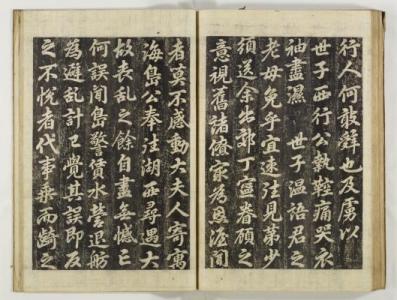 行人何敢辭也及虜以
世子西行公執鞚痛哭衣
袖盡濕 世子温語君之
老母免乎宜速往見第少
須送余郊丁寧眷顧之
意視舊諸僚家為恩渥聞
者莫不感動大夫人寄寓
海島公奉往湖西尋遇大
故喪乱之餘自盡無憾已
何誤聞島警賃水營退舫
為避乱計已覺其誤即反
之不悅者代事乘而齮之